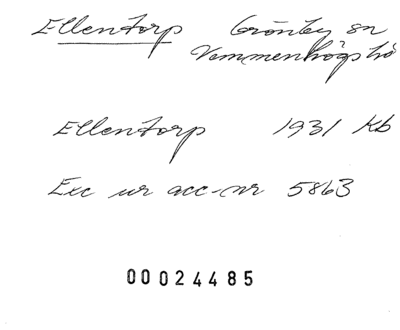 Ellentorp Grönby sn
Vemmenhögs hd
Ellentorp 1931 Kb
Exc ur acc-nr 5863
00024485